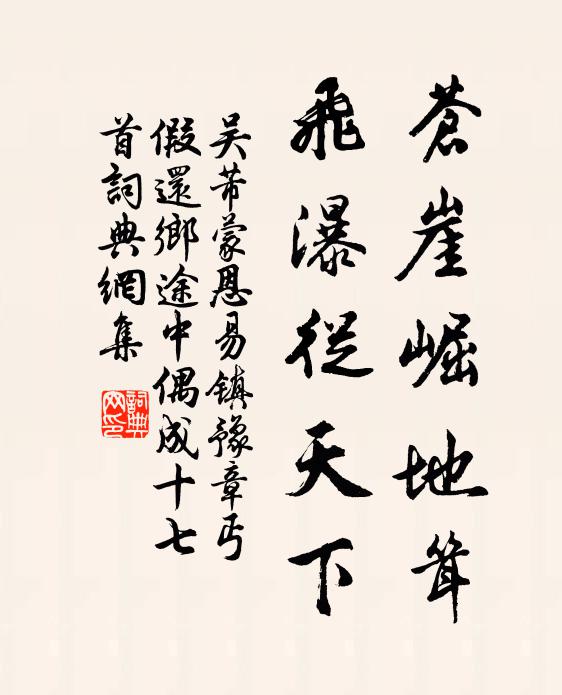 蒼崖崛地聳
飛瀑從天下
吴芾蒙恩易鎮豫章丐
假還鄉途中偶成十七
首詞典網集
詞典网印